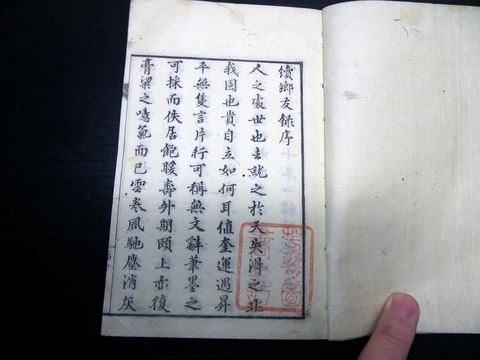 續鄉友錄序
人之處世也去就之於天失得之非
我固也貴自立如何耳值奎運遇昇
平無隻言片行可稱無文辭筆墨之
可採而佚居飽暖壽外期頤上亦復
膏粱之噫氣而已雲卷風馳塵消灰